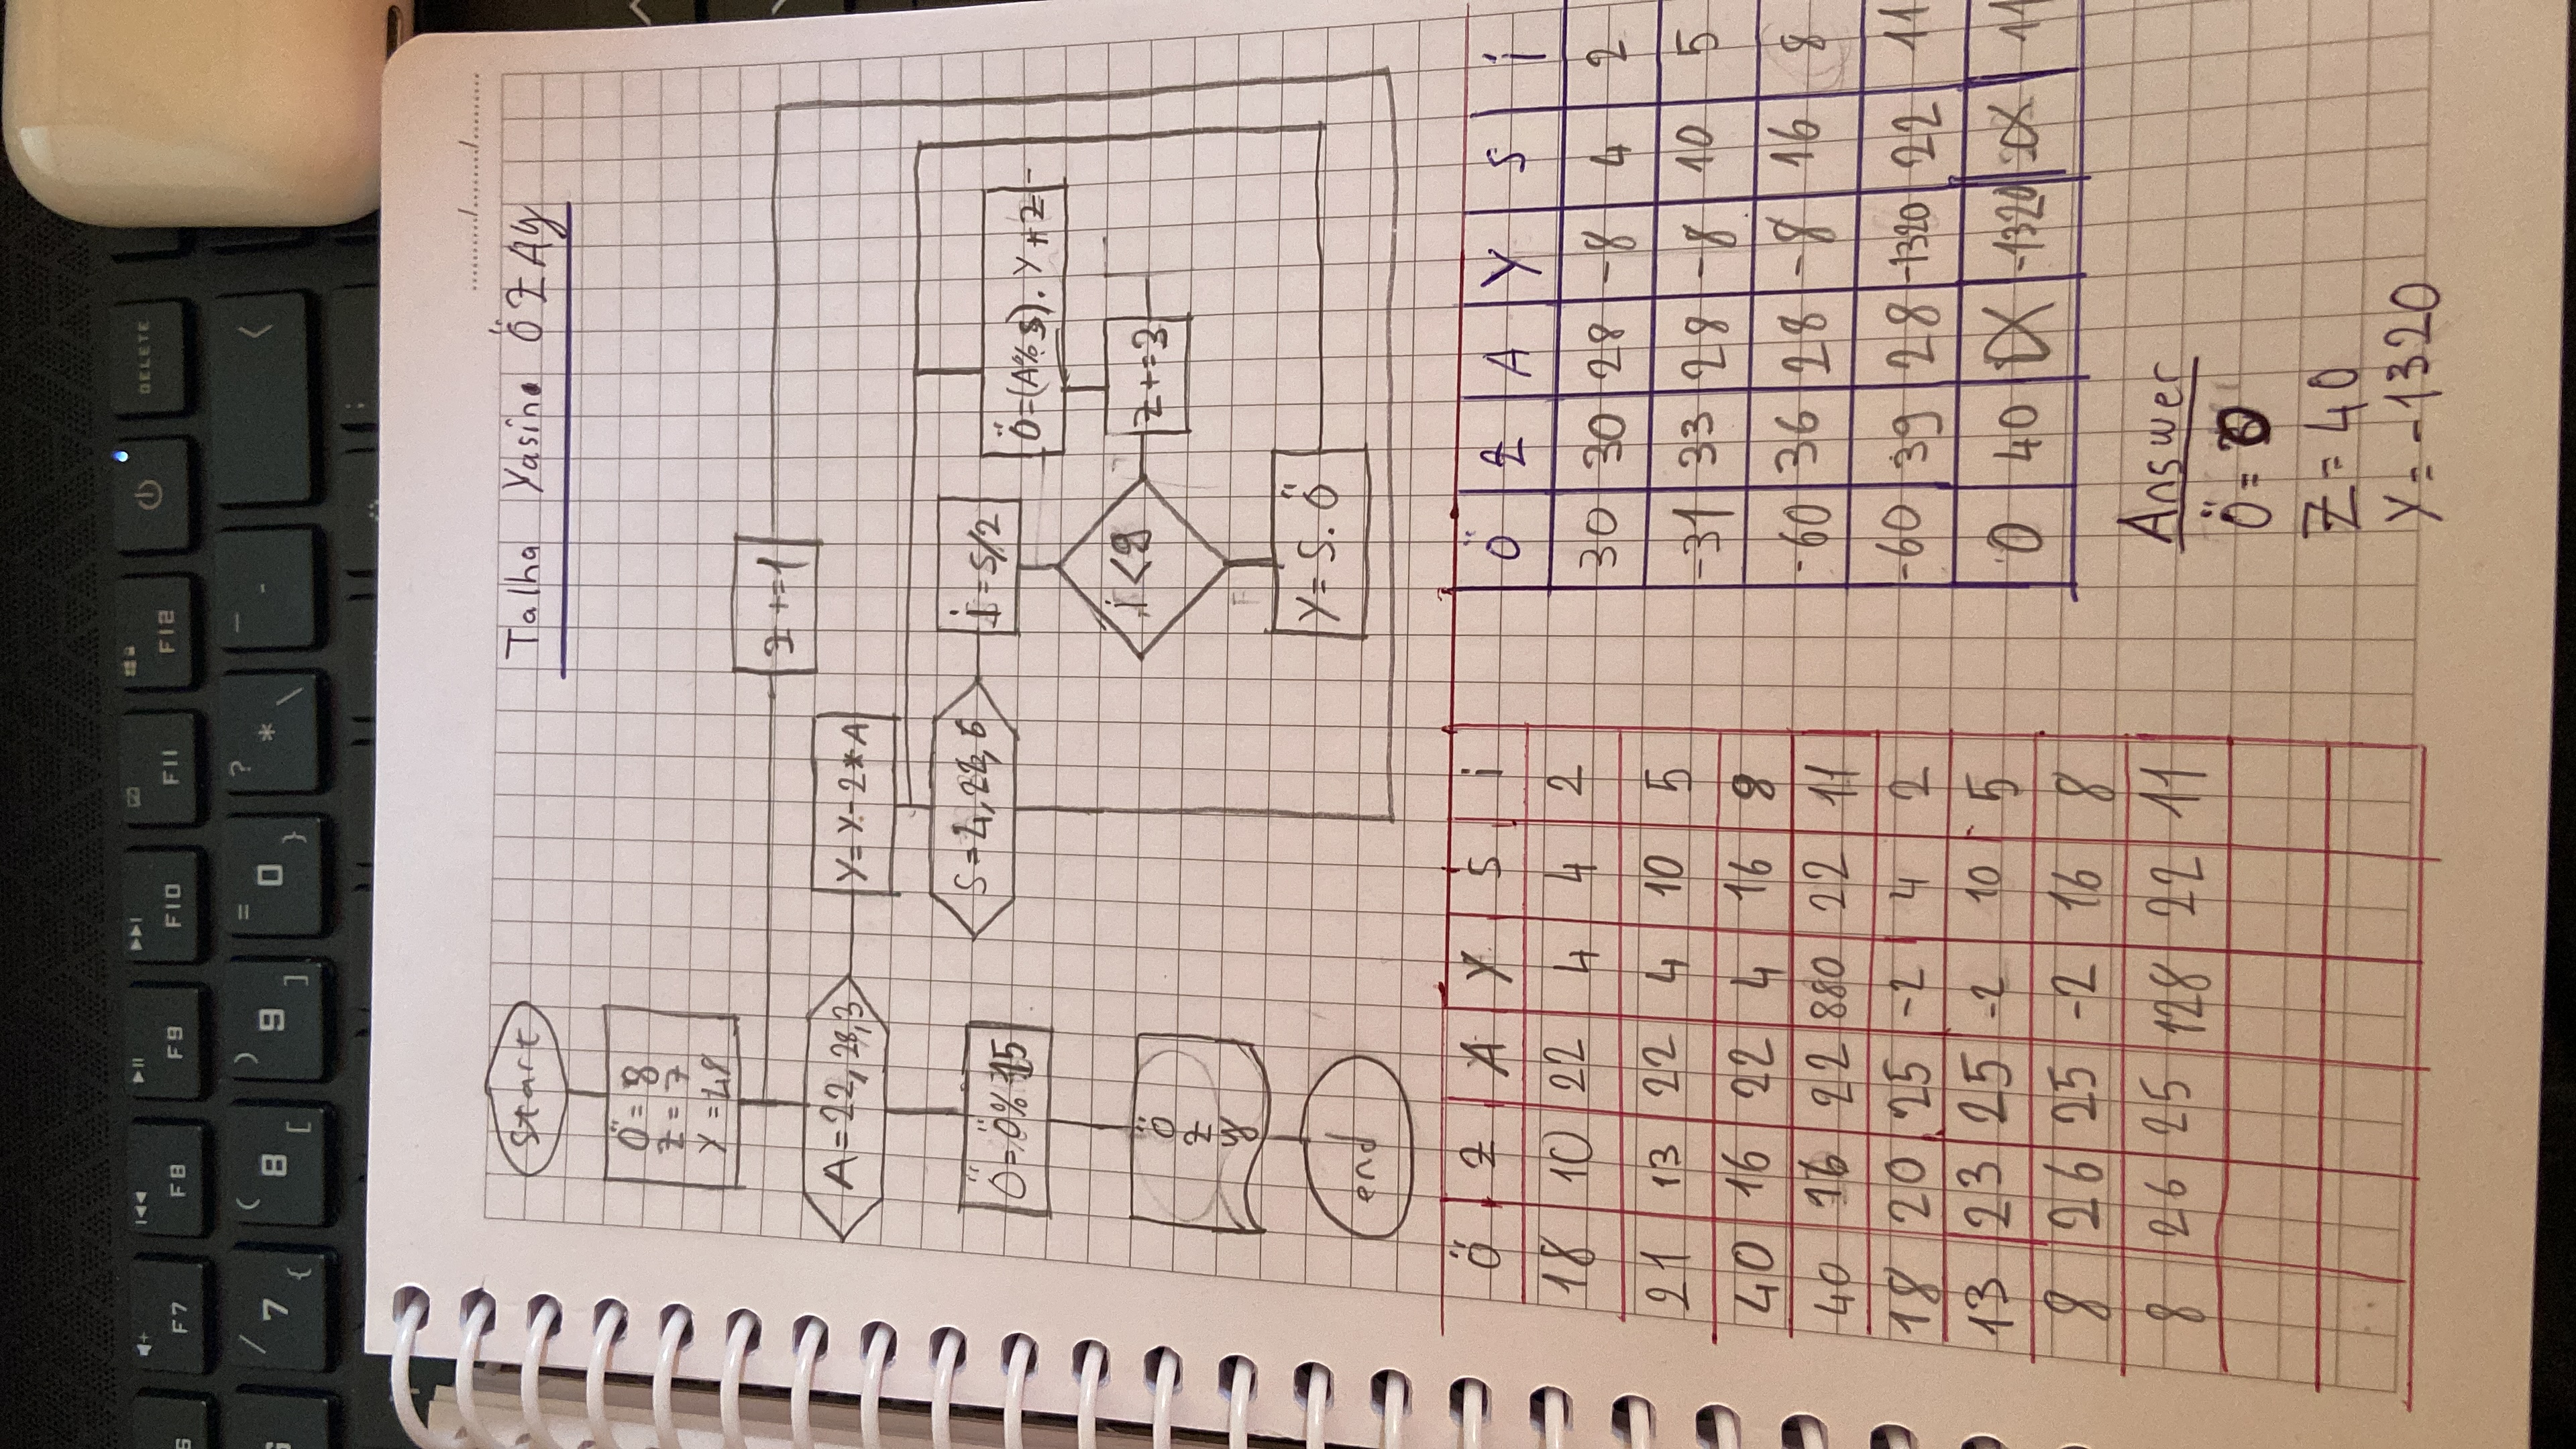 F7 F8 F9 F10 F11 F12 DELETE
/ 7 { ( 8 [ ) 9 ] = 0 } ? * \ _ -
start
Talha Yasin ÖZAY
Ö = 8
Z = 7
Y = 48
Z +=1
A = 22, 28, 3
Y= Y- 2*A
S = 4, 22, 6
i = S/2
Ö = Ö % 15
Ö=(A% S). Y + Z
i < 9
Z+=3
Ö
Z
Y
F
Y= S. Ö
end
Ö Z A Y S i
18 10 22 4 4 2
21 13 22 4 10 5
40 16 22 4 16 8
40 16 22 880 22 11
18 20 25 -2 4 2
13 23 25 -2 10 5
8 26 25 -2 16 8
8 26 25 128 22 11
Ö Z A Y S i
30 30 28 -8 4 2
-31 33 28 -8 10 5
-60 36 28 -8 16 8
-60 39 28 -1320 22 11
0 40 -1320 11
Answer
Ö = 0
Z = 40
Y = -1320